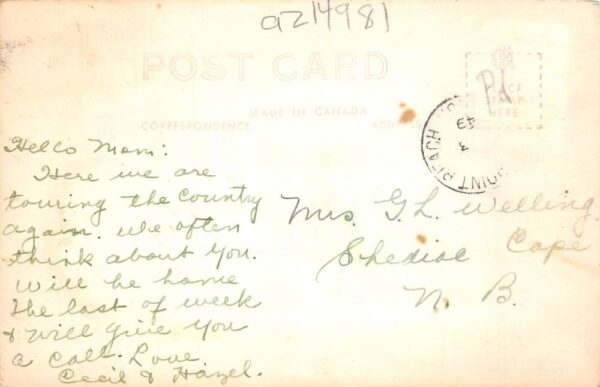 az14981
POST CARD
MADE IN CANADA
CORRESPONDENCE
HERE
Pd
POINT BEACH
3
49
Hello Mom:
Here we are
touring the country
again. We often
think about you.
Will be home
the last of week
& will give you
a call. Love
Cecil & Hazel.
Mrs. G. L. Welling
Shediac Cape
N. B.